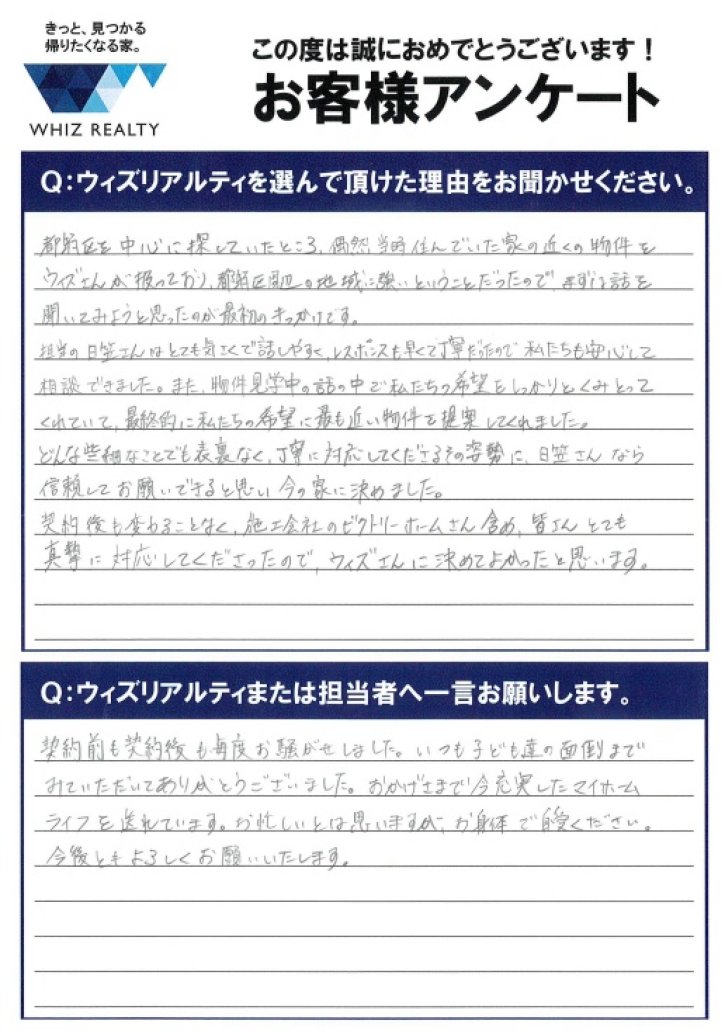 きっと、見つかる
帰りたくなる家。
WHIZ REALTY
この度は誠におめでとうございます！
お客様アンケート
Q：ウィズリアルティを選んで頂けた理由をお聞かせください。
都筑区を中心に探していたところ、偶然当時住んでいた家の近くの物件を
ウィズさんが扱っており、都筑区周辺の地域に強いということだったので、まずは話を
聞いてみようと思ったのが最初のきっかけです。
担当の日笠さんはとても気さくで話しやすく、レスポンスも早くて丁寧だったので私たちも安心して
相談できました。また、物件見学中の話の中で私たちの希望をしっかりとくみとって
くれていて、最終的に私たちの希望に最も近い物件を提案してくれました。
どんな些細なことでも表裏なく、丁寧に対応してくださるその姿勢に、日笠さんなら
信頼してお願いできると思い今の家に決めました。
契約後も変わることなく、施工会社のビクトリーホームさん含め、皆さんとても
真摯に対応してくださったので、ウィズさんに決めてよかったと思います。
Q：ウィズリアルティまたは担当者へ一言お願いします。
契約前も契約後も毎度お騒がせしました。いつも子ども達の面倒まで
みていただいてありがとうございました。おかげさまで今充実したマイホーム
ライフを送れています。お忙しいとは思いますが、お身体ご自愛ください。
今後ともよろしくお願いいたします。